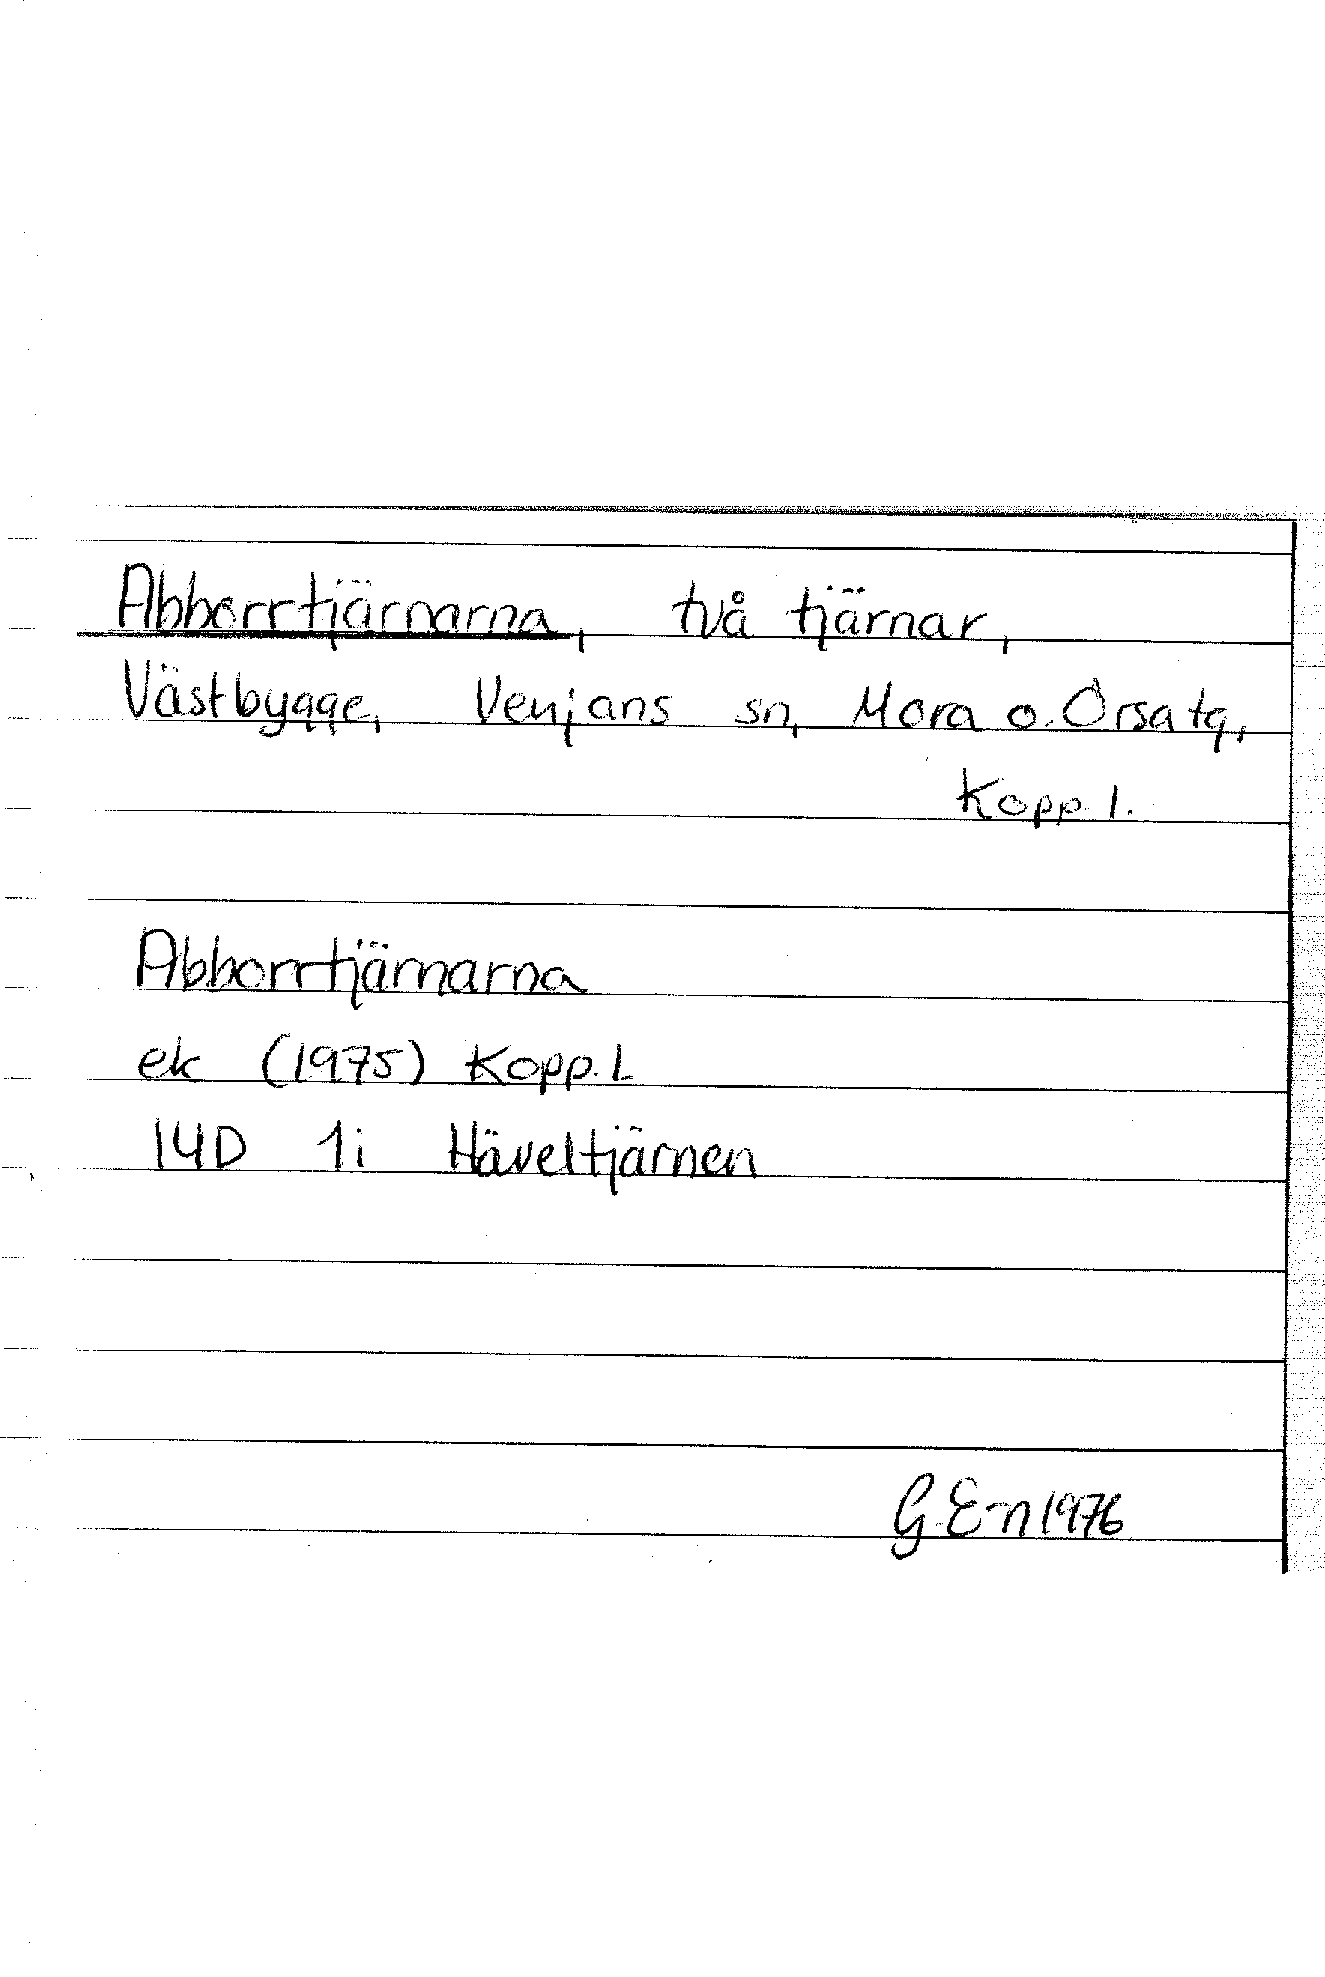 Abborrtjärnarna, två tjärnar,
Västbygge, Venjans sn, Mora o. Orsa tg,
Kopp. l.
Abborrtjärnarna
ek (1975) Kopp. L
14D 1i Häveltjärnen
G. E-n 1976